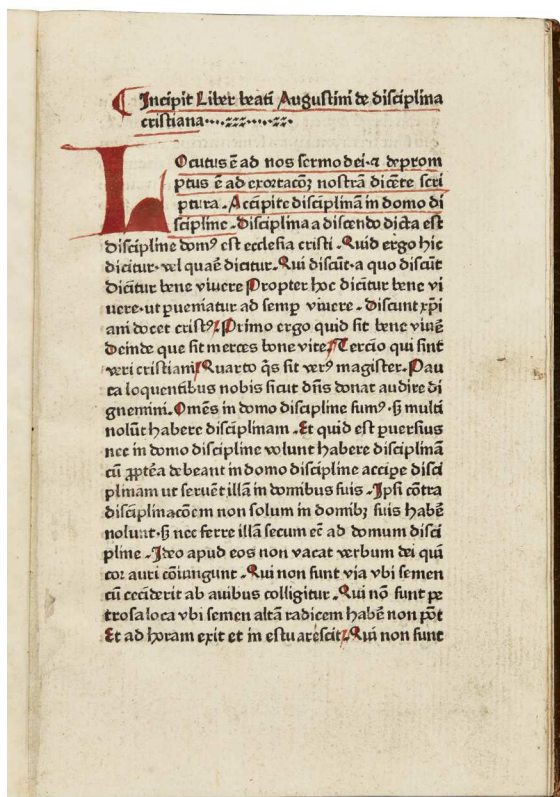 Incipit Liber beati Augustini de disciplina
cristiana
LOcutus ē ad nos sermo dei·⁊ deprom
ptus ē ad exortacōꝫ nostrā dicēte scri
ptura. Accipite disciplinā in domo di
scipline. disciplina a discendo dicta est
discipline domꝰ est ecclesia cristi. Quid ergo hic
dicitur· vel quare dicitur. Qui discūt· a quo discūt
dicitur bene viuere Propter hoc dicitur bene vi
uere· ut pueniatur ad semp viuere. discunt xp̄i
ani docet cristꝰ Primo ergo quid sit bene viuē
deinde que sit merces bone vite Tercio qui sint
veri cristiani Quarto q̄s sit verꝰ magister. Pau
ca loquentibus nobis sicut dn̄s donat audire di
gnemini. Omēs in domo discipline sumꝰ· sꝫ multi
nolūt habere disciplinam. Et quid est puersius
nec in domo discipline volunt habere disciplinā
cū ꝓptēa debeant in domo discipline accipe disci
plinam ut seruēt illā in domibus suis. Ipsi cōtra
disciplinacōem non solum in domibꝫ suis habē
nolunt· sꝫ nec ferre illā secum eē ad domum disci
pline. Ideo apud eos non vacat verbum dei qui
cor auri cōiungunt. Qui non sunt via vbi semen
cū ceciderit ab auibus colligitur. Qui nō sunt pe
trosa loca vbi semen altā radicem habē non pōt
Et ad horam exit et in estu arescit Qui non sunt